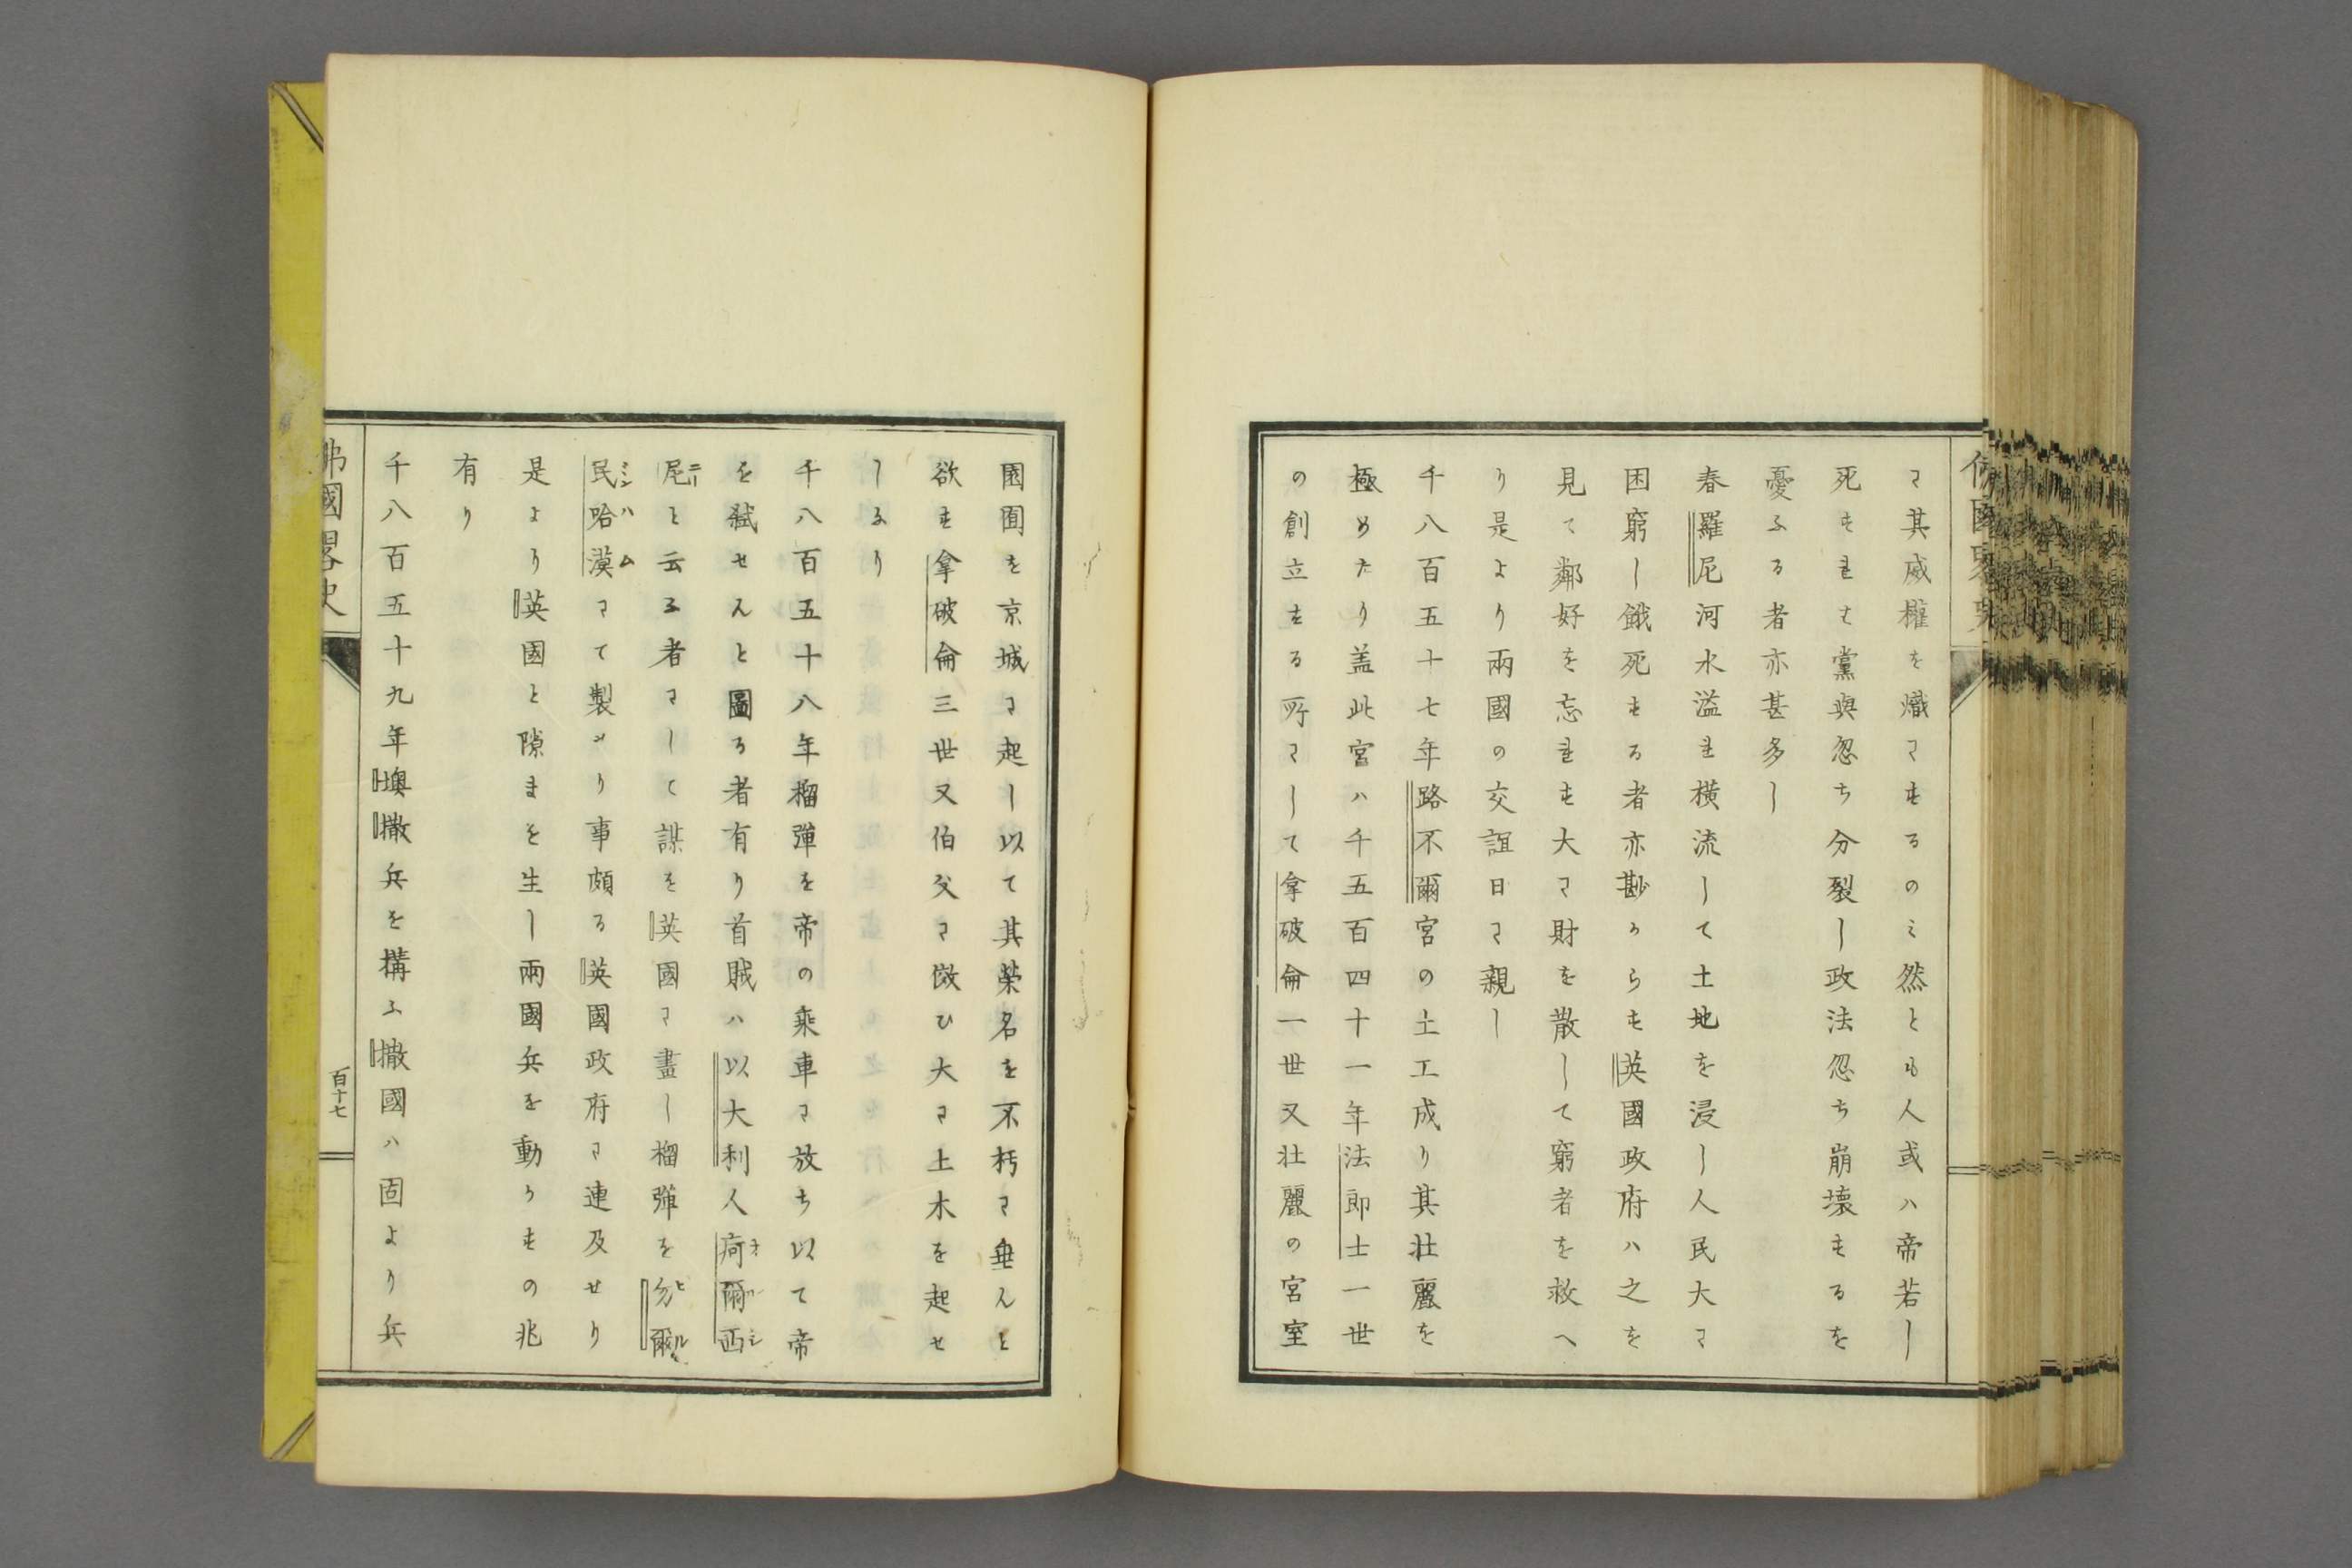 に其威權を熾にするのミ然とも人或ハ帝若し
死すれは黨與忽ち分裂し政法忽ち崩壊するを
憂ふる者亦甚多し
春羅尼河水溢れ横流して土地を浸し人民大に
困窮し餓死する者亦尠からす英國政府ハ之を
見て鄰好を忘れす大に財を散して窮者を救へ
り是より兩國の交誼日に親し
千八百五十七年路不爾宮の土工成り其壮麗を
極めたり盖此宮ハ千五百四十一年法郎士一世
の創立する所にして拿破侖一世又壮麗の宮室
園囿を京城に起し以て其榮名を不朽に垂んと
欲す拿破侖三世又伯父に倣ひ大に土木を起せ
しなり
千八百五十八年榴彈を帝の乘車に放ち以て帝
を弑せんと圖る者有り首賊ハ以大利人疴爾西
尼と云ふ者にして謀を英國に畫し榴彈を勿爾
民哈漠にて製せり事頗る英國政府に連及せり
是より英國と隙を生し兩國兵を動かすの兆
有り
千八百五十九年墺撒兵を構ふ撒國ハ固より兵
佛國畧史
百十七